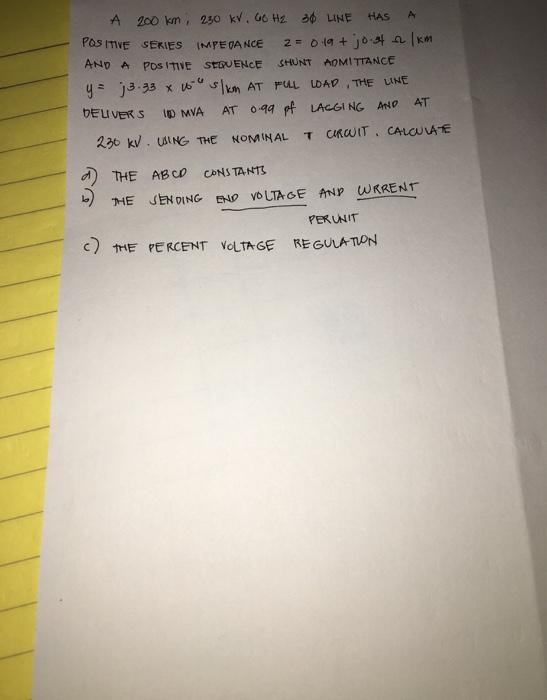 A 200 km, 230 kV, 60 HZ 3Φ LINE HAS A
POSITIVE SERIES IMPEDANCE Z = 0.19 + j0.34 Ω/km
AND A POSITIVE SEQUENCE SHUNT ADMITTANCE
y = j3.33 x 10⁻⁶ S/km AT FULL LOAD, THE LINE
DELIVERS MVA AT 0.99 pf LAGGING AND AT
230 kV. USING THE NOMINAL T CIRCUIT, CALCULATE
a) THE ABCD CONSTANTS
b) THE SENDING END VOLTAGE AND CURRENT
PERUNIT
c) THE PERCENT VOLTAGE REGULATION